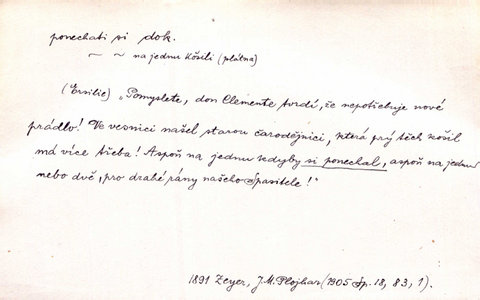 ponechati si dok.
~ ~ na jednu košili (plátna)
(Ersilie) „Pomyslete, don Clemente tvrdí, že nepotřebuje nové
prádlo! Ve vesnici našel starou čarodějnici, která prý těch košil
má více třeba! Aspoň na jednu kdyby si ponechal, aspoň na jednu
nebo dvě, pro drahé rány našeho Spasitele!"
1891 Zeyer, J. M. Plojhar (1905 Sp. 18, 83, 1).